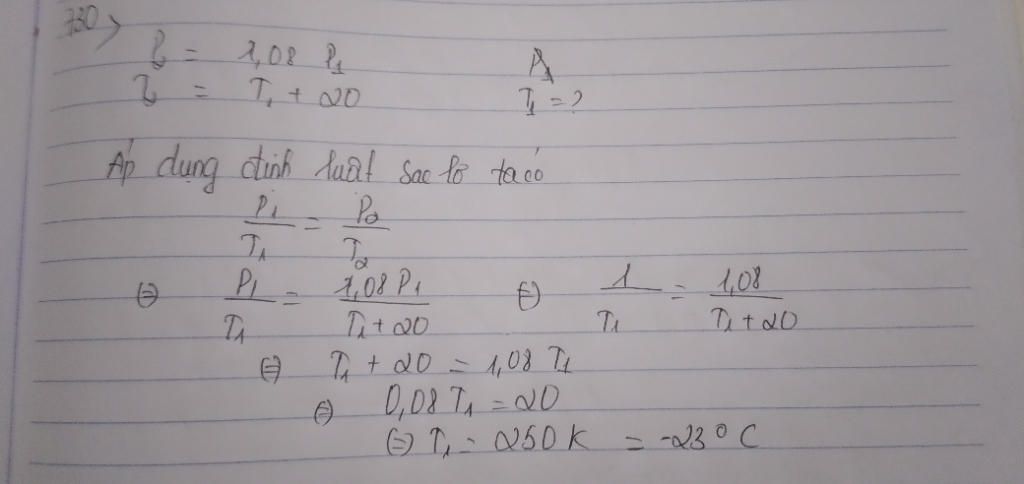 730>
P₂ = 1,08 P₁
T₂ = T₁ + 20 T₁ = ?
Áp dụng định luật Sac lơ ta có
P₁/T₁ = P₂/T₂
⇔ P₁/T₁ = 1,08 P₁/T₁ + 20 ⇔ 1/T₁ = 1,08/T₁ + 20
⇔ T₁ + 20 = 1,08 T₁
⇔ 0,08 T₁ = 20
⇔ T₁ = 250 K = -23° C